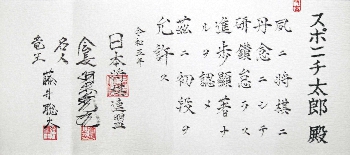 スポニチ太郎 殿
夙ニ将棋ニ
丹念ニシテ
研鑽怠ラス
進歩顕著ナ
ルヲ認メ
茲ニ初段ヲ
允許ス
令和三年
日本将棋連盟
会長
名人
竜王 藤井聡太